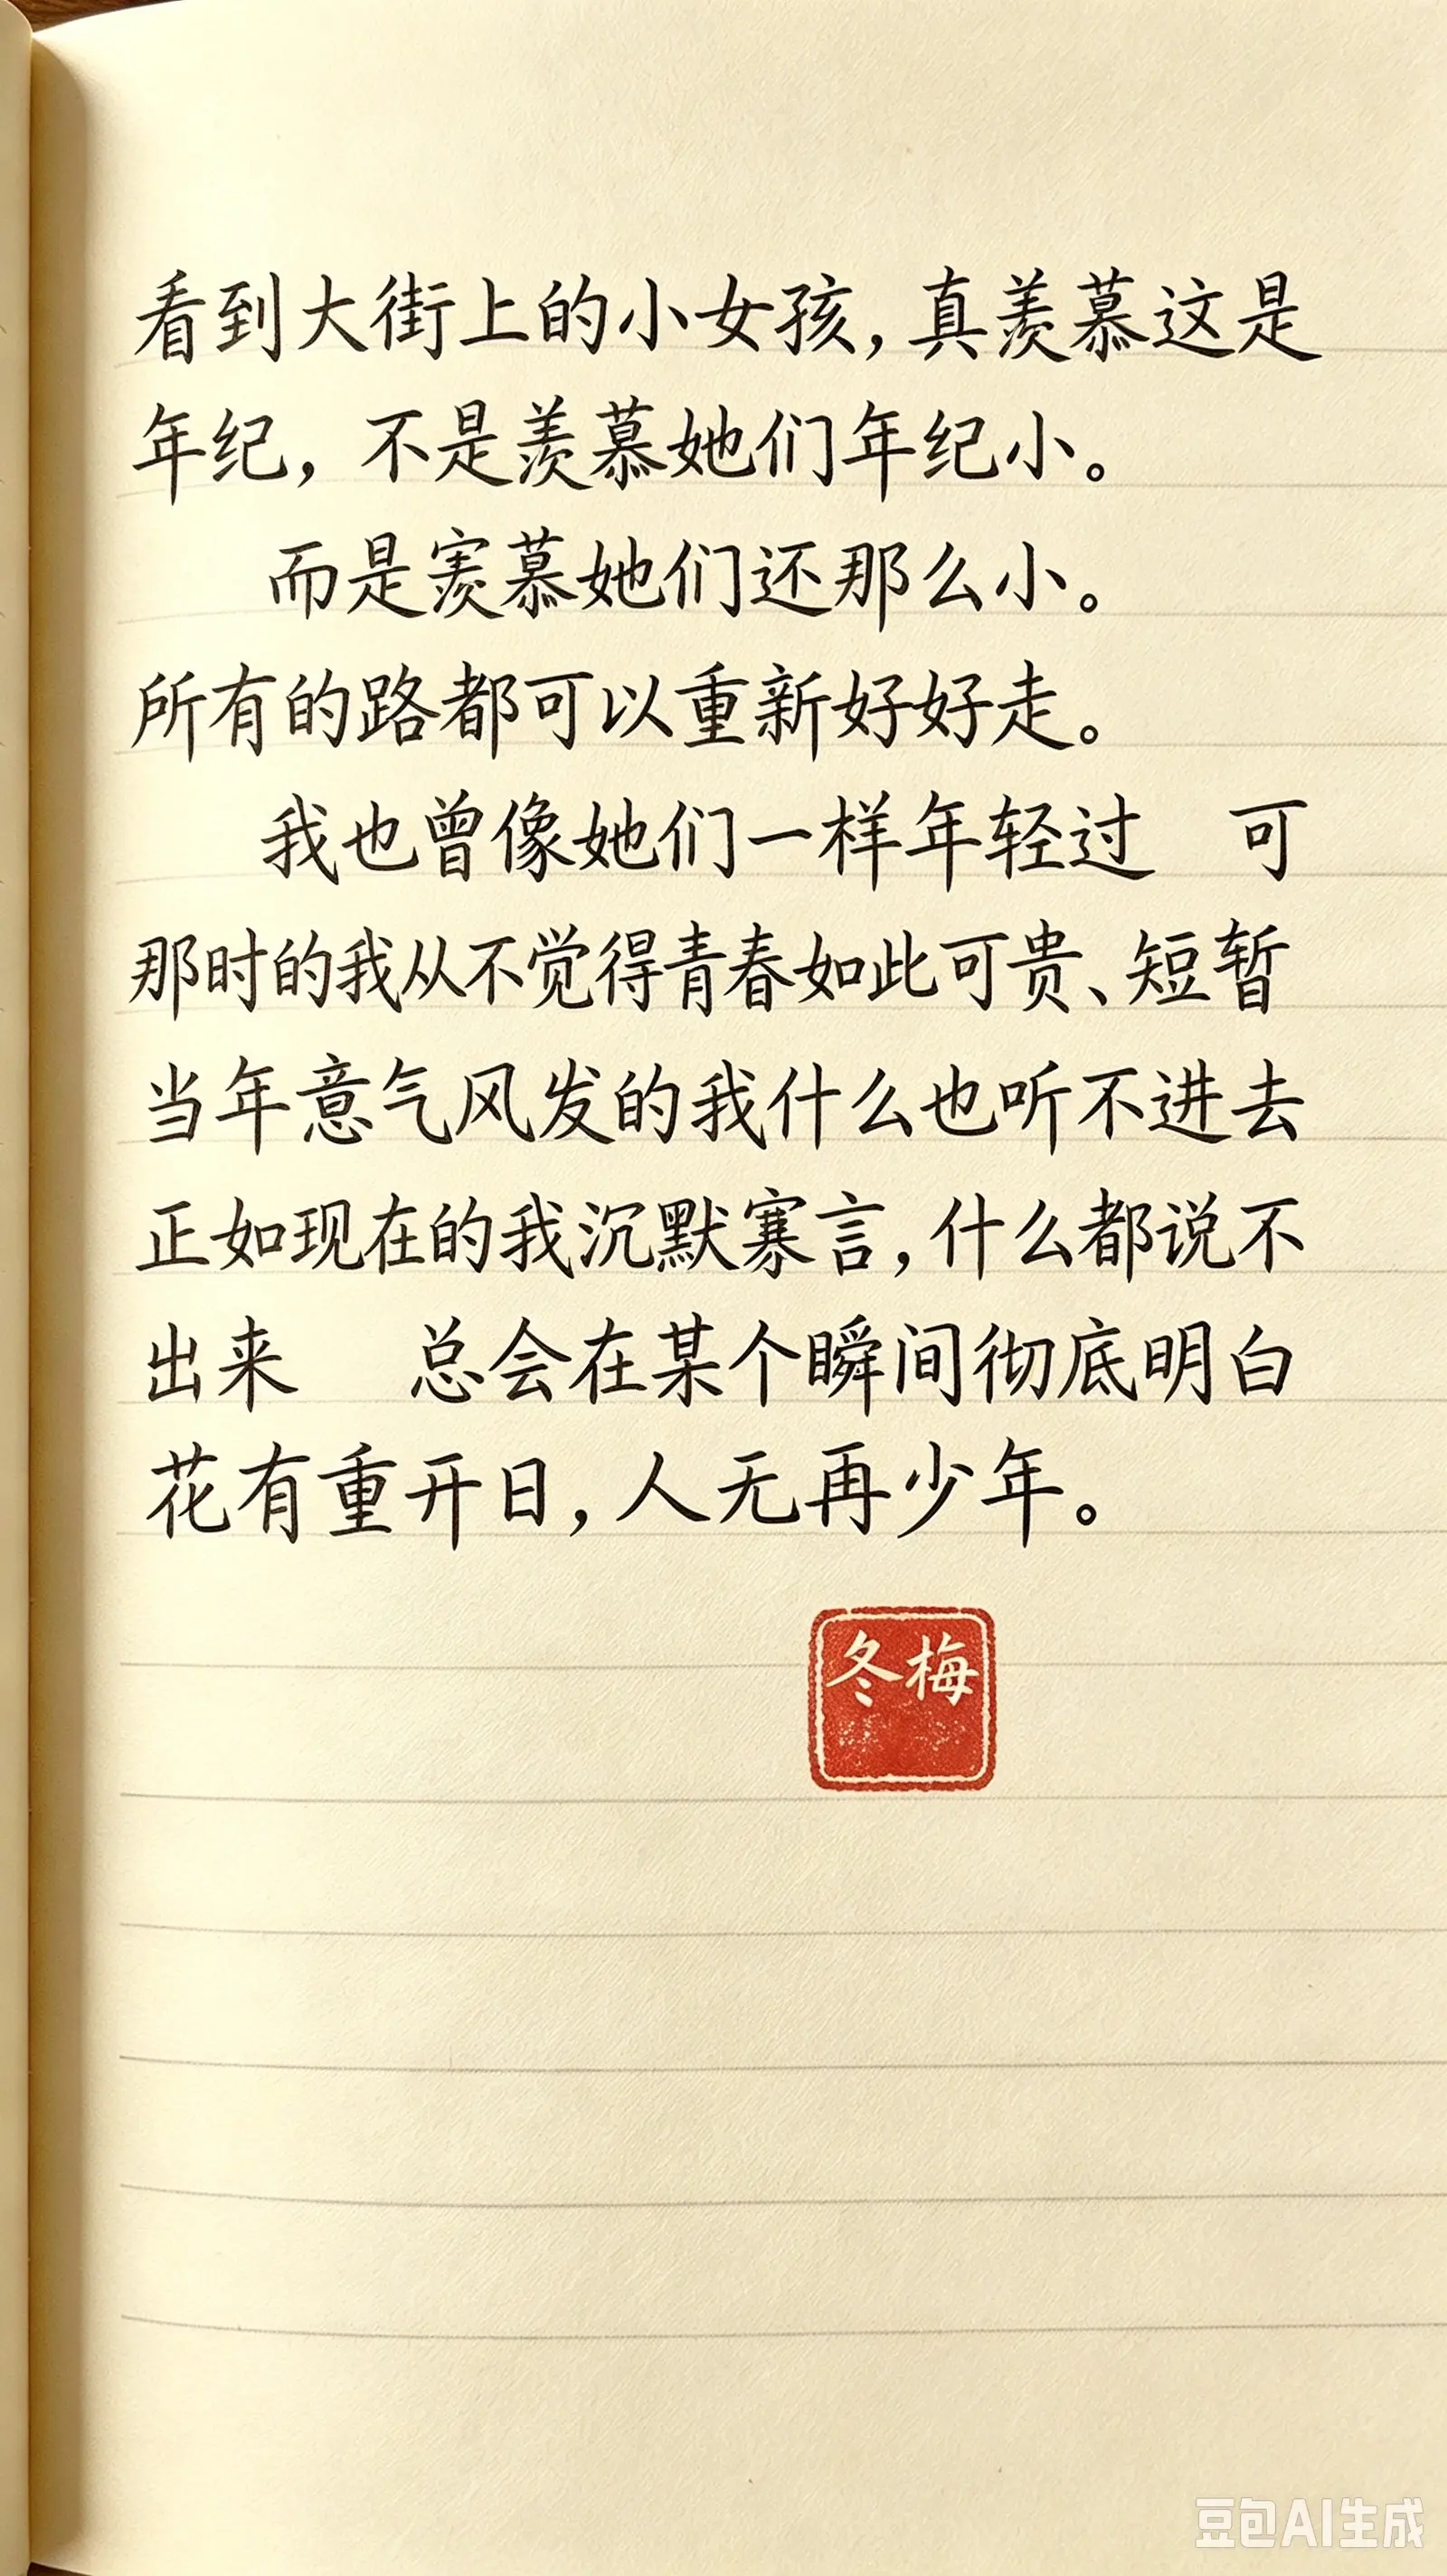 看到大街上的小女孩,真羡慕这是
年纪,不是羡慕她们年纪小。
而是羡慕她们还那么小。
所有的路都可以重新好好走。
我也曾像她们一样年轻过 可
那时的我从不觉得青春如此可贵、短暂
当年意气风发的我什么也听不进去
正如现在的我沉默寡言,什么都说不
出来 总会在某个瞬间彻底明白
花有重开日,人无再少年。
冬梅
豆包AI生成